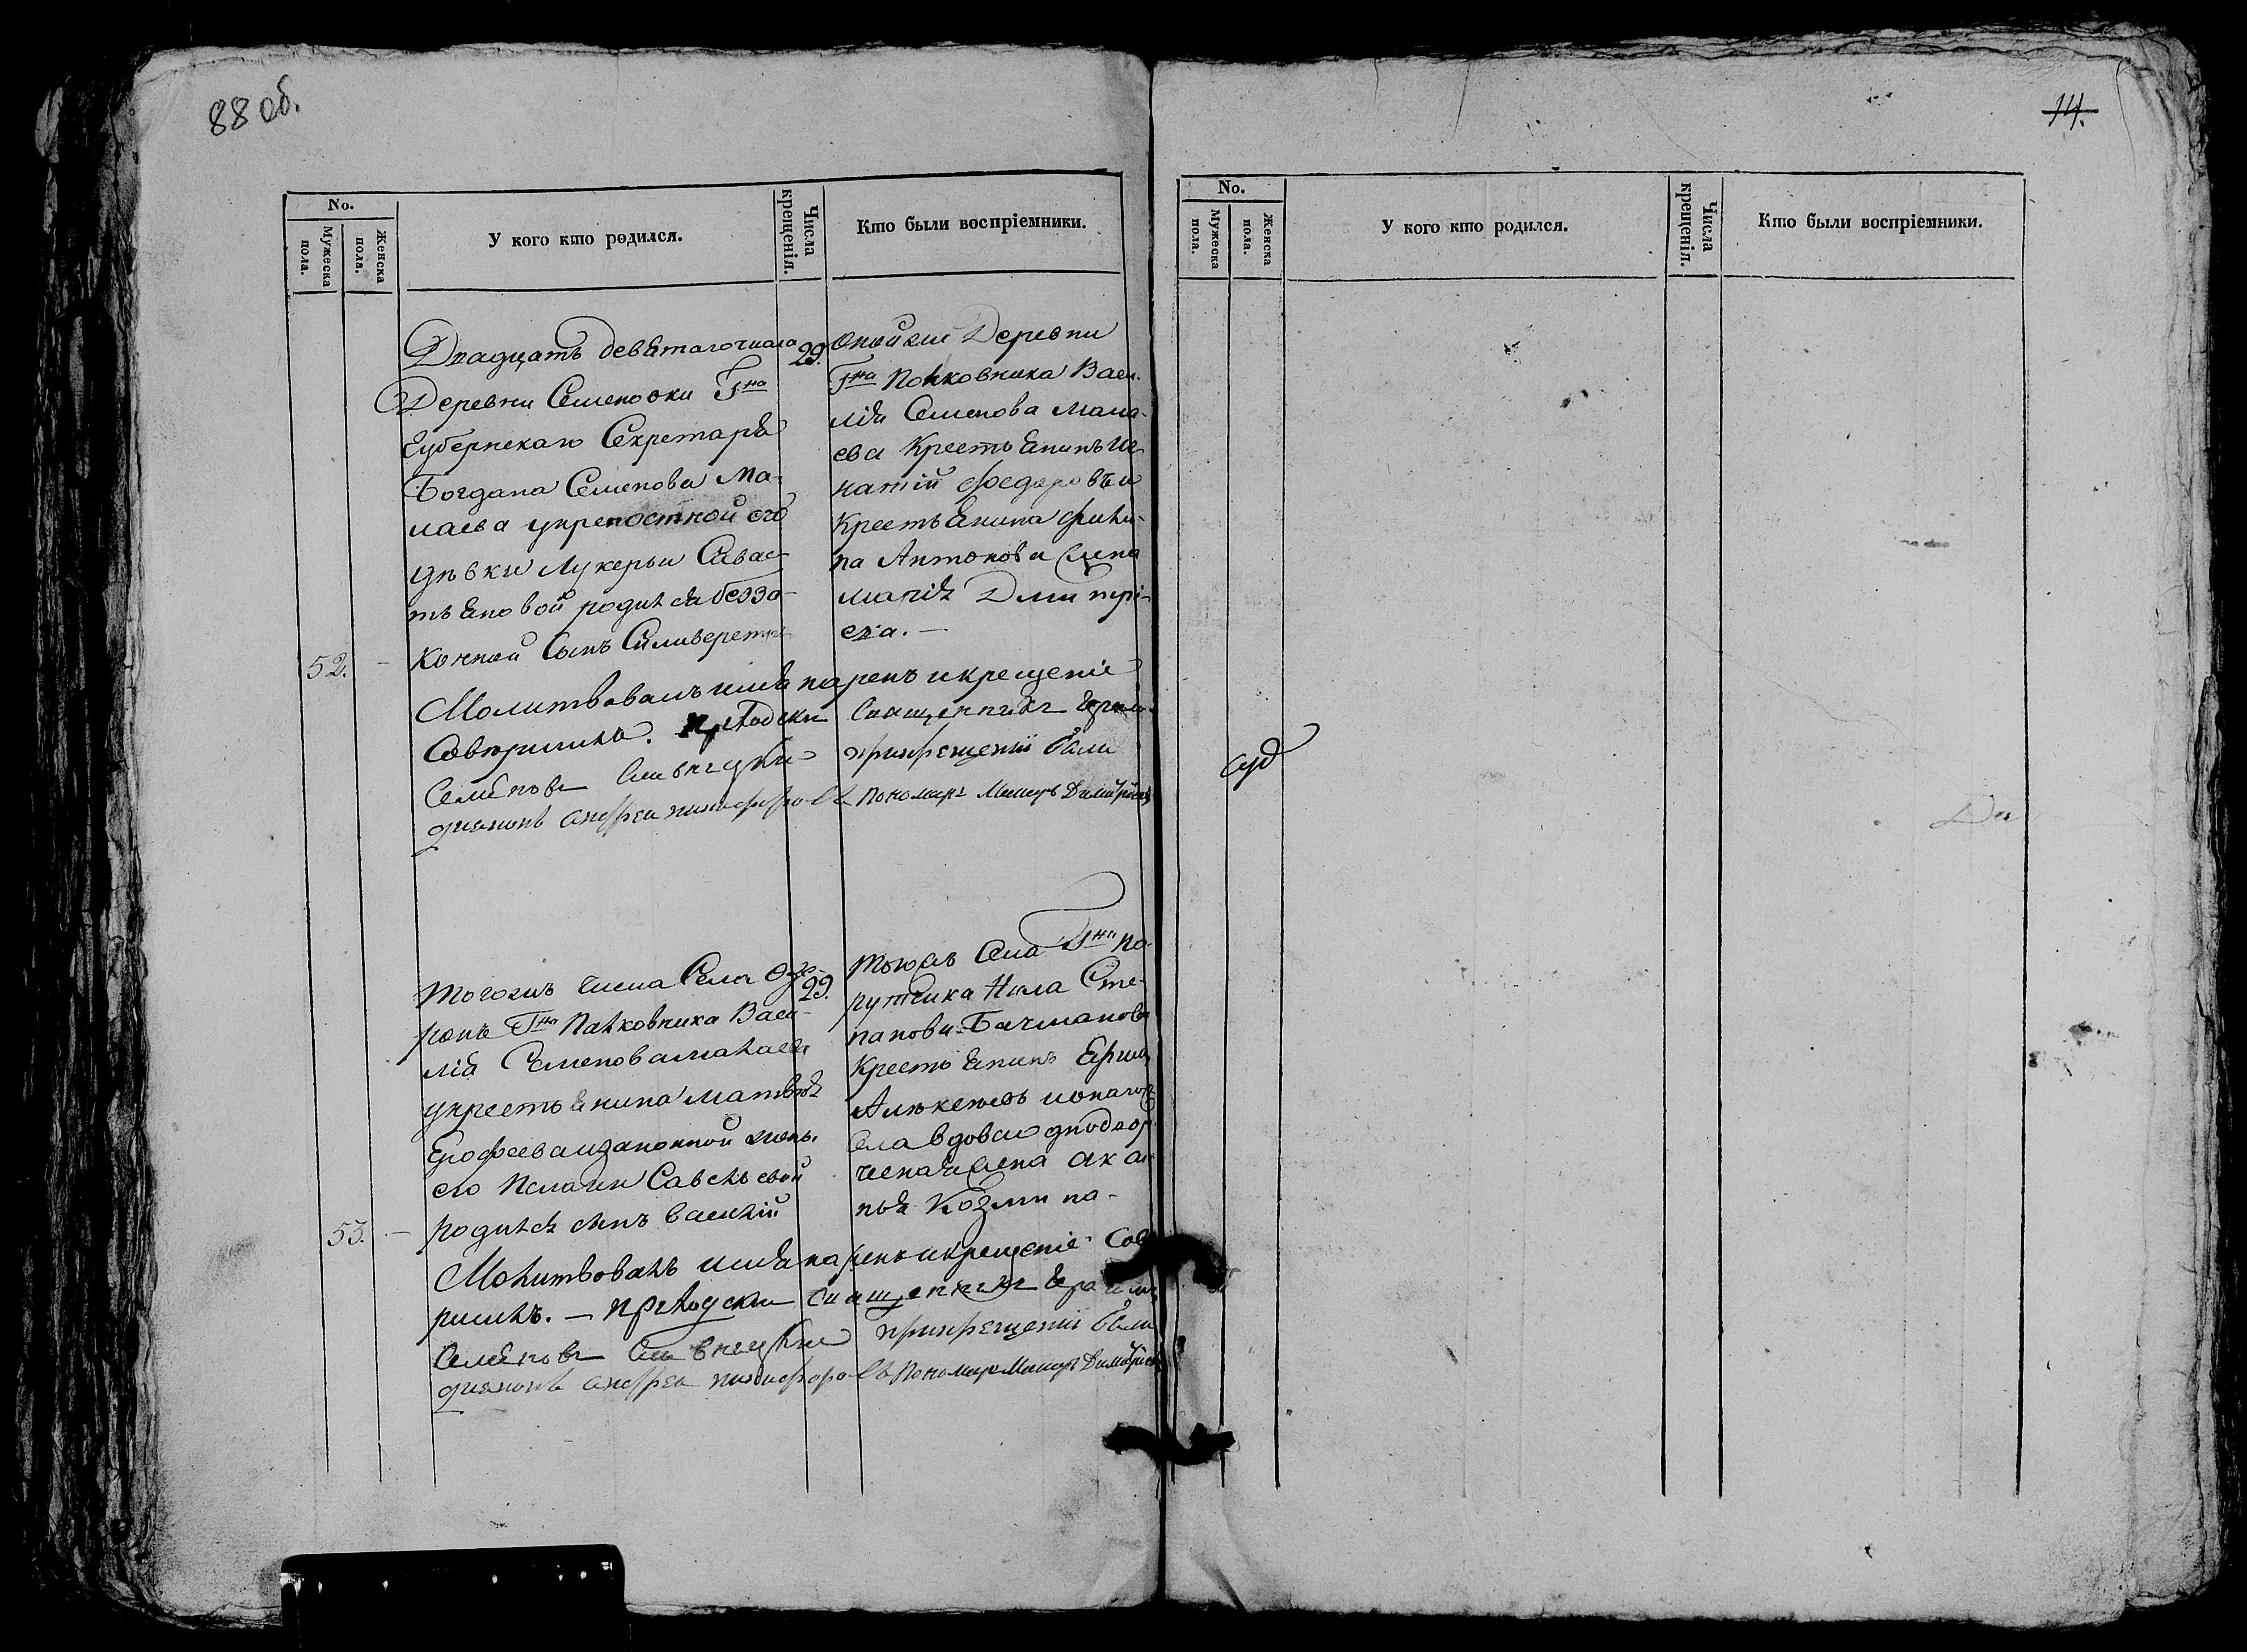 88 об.
No.
Мужеска пола.
Женска пола.
У кого кто родился.
Числа крещенія.
Кто были воспріемники.
Двадцать девятагочисла
Деревни Семеновки Гна
Губернскаго Секретаря
Богдана Семенова Ма-
маева укрепостной его
дѣвки Лукерьи Савас-
тьяновой родился безза-
52. - конной Сынъ Силиверстъ
29.
оной же Деревни
Гна Полковника Васи-
лія Семенова Мама-
ева Крестьянинъ Иг-
натій Федоровъ и
Крестьянина Фили-
па Антонова жена
Марія Дмитрі-
ева. —
Молитвовалъ имя нарекъ и крещеніе
Совершилъ. приходски Священникъ
Семеновъ при крещеніи были
дияконъ Андреи Никифоровъ Пономарь Димитріевъ
Тогожъ числа Села
Гна Полковника Васи-
лія Семенова Мамаева
укрестьянина Матвѣя
Ерофеева и законной жены
его Пелагеи Савельевой
53. - родился сынъ Василій
29.
Тогожъ Села Гна По-
ручика Нила Сте-
панова Бахманова
Крестьянинъ
Алексѣевъ
села вдова однодвор-
Козмина -
Молитвовалъ имя нарекъ и крещеніе Сове-
ршилъ. — приходски Священникъ
Семеновъ при крещеніи были
дияконъ Андреи Никифоровъ Пономарь Димитріевъ
14.
No.
Мужеска пола.
Женска пола.
У кого кто родился.
Числа крещенія.
Кто были воспріемники.